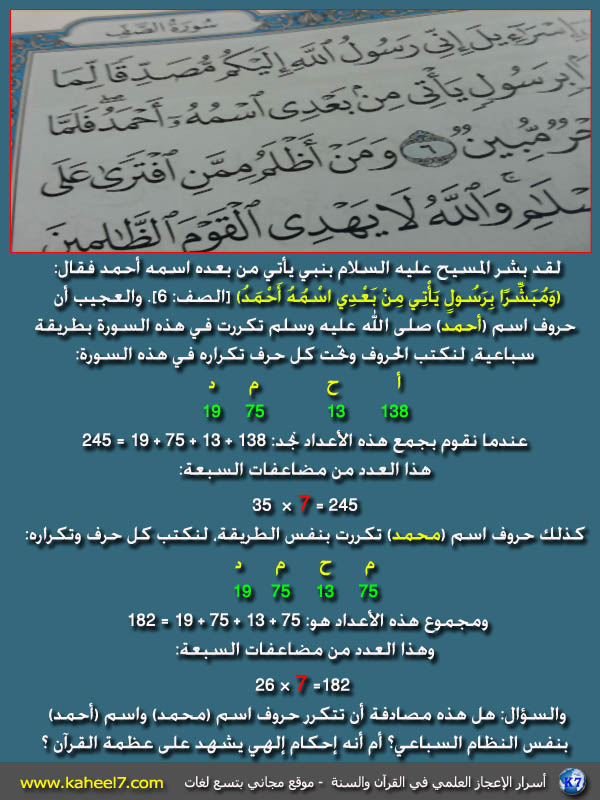 سُورَةُ الصَّفِّ
إِسْرَٰٓءِيلَ إِنِّي رَسُولُ ٱللَّهِ إِلَيْكُم مُّصَدِّقًا لِّمَا
بِرَسُولٍ يَأْتِي مِنۢ بَعْدِي ٱسْمُهُۥٓ أَحْمَدُ ۖ فَلَمَّا
مُّبِينٌ ٦ وَمَنْ أَظْلَمُ مِمَّنِ ٱفْتَرَىٰ عَلَى
وَٱللَّهُ لَا يَهْدِي ٱلْقَوْمَ ٱلظَّٰلِمِينَ
لقد بشر المسيح عليه السلام بنبي يأتي من بعده اسمه أحمد فقال:
(وَمُبَشِّرًا بِرَسُولٍ يَأْتِي مِنْ بَعْدِي اسْمُهُ أَحْمَدُ) [الصف: 6]. والعجيب أن
حروف اسم (أحمد) صلى الله عليه وسلم تكررت في هذه السورة بطريقة
سباعية، لنكتب الحروف وتحت كل حرف تكراره في هذه السورة:
أ ح م د
138 13 75 19
عندما نقوم بجمع هذه الأعداد نجد: 138 + 13 + 75 + 19 = 245
هذا العدد من مضاعفات السبعة:
245 = 7 × 35
كذلك حروف اسم (محمد) تكررت بنفس الطريقة، لنكتب كل حرف وتكراره:
م ح م د
75 13 75 19
ومجموع هذه الأعداد هو: 75 + 13 + 75 + 19 = 182
وهذا العدد من مضاعفات السبعة:
182= 7 × 26
والسؤال: هل هذه مصادفة أن تتكرر حروف اسم (محمد) واسم (أحمد)
بنفس النظام السباعي؟ أم أنه إحكام إلهي يشهد على عظمة القرآن ؟
K7 أسرار الإعجاز العلمي في القرآن والسنة - موقع مجاني بتسع لغات www.kaheel7.com